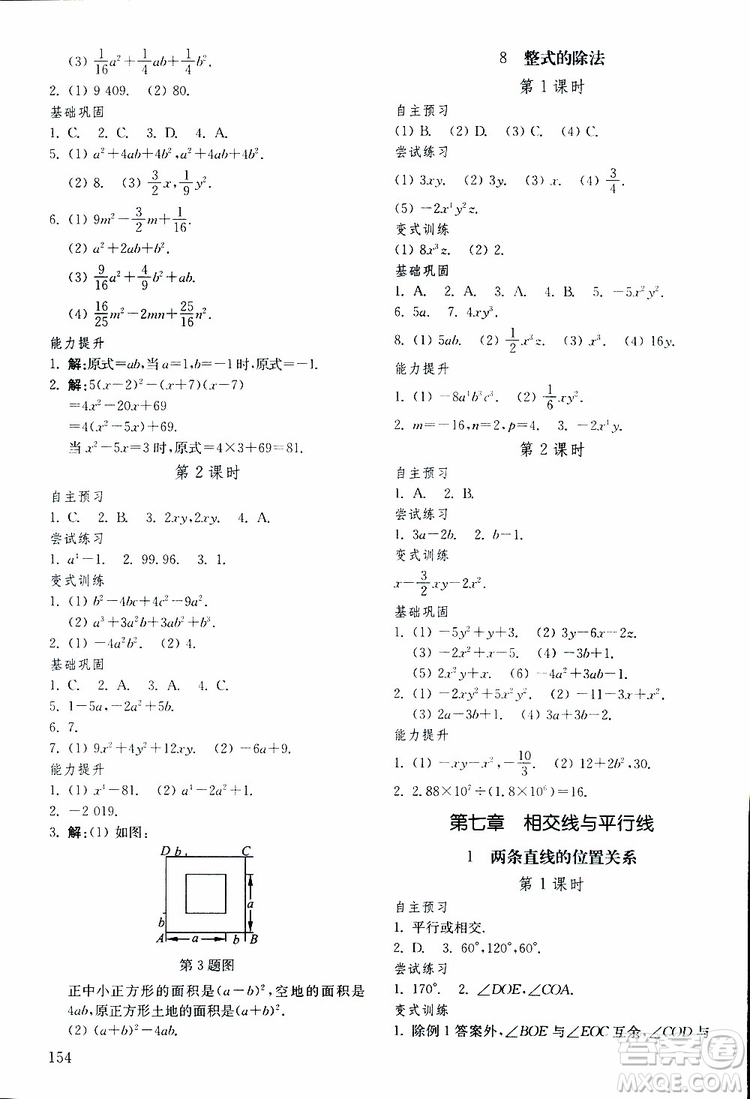 (3) 1/16a²+1/4ab+1/4b².
2. (1) 9 409. (2) 80.
基础巩固
1. C. 2. C. 3. D. 4. A.
5. (1) a²+4ab+4b²,a²+4ab+4b².
(2) 8. (3) 3/2x,1/9y².
6. (1) 9m²-3/2m+1/16.
(2) a²+2ab+b².
(3) 9/16a²+4/9b²+ab.
(4) 16/25m²-2mn+25/16n².
能力提升
1. 解:原式=ab,当a=1,b=-1时,原式=-1.
2. 解:5(x-2)²-(x+7)(x-7)
=4x²-20x+69
=4(x²-5x)+69.
当x²-5x=3时,原式=4×3+69=81.
第2课时
自主预习
1. C. 2. B. 3. 2xy,2xy. 4. A.
尝试练习
1. a⁴-1. 2. 99.96. 3. 1.
变式训练
1. (1) b²-4bc+4c²-9a².
(2) a³+3a²b+3ab²+b³.
2. (1)-4a². (2) 4.
基础巩固
1. C. 2. A. 3. D. 4. A.
5. 1-5a,-2a²+5b.
6. 7.
7. (1) 9x²+4y²+12xy. (2) -6a+9.
能力提升
1. (1) x⁴-81. (2) a²-b²-c²+2bc.
2. -2 019.
3. 解:(1) 如图:
D b C
b a
A a b B
第3题图
正中小正方形的面积是(a-b)²,空地的面积是
4ab,原正方形土地的面积是(a+b)².
(2) (a+b)²-4ab=(a-b)².
154
8 整式的除法
第1课时
自主预习
(1) B. (2) D. (3) C. (4) C.
尝试练习
(1) 3xy. (2) 3y. (3) x. (4) 3/4.
(5) -2x⁴y²z.
变式训练
(1) 8x³z. (2) 4.
基础巩固
1. A. 2. C. 3. A. 4. B. 5. -5x²y.
6. 5a. 7. 4xy³.
8. (1) 5ab. (2) 1/2x³z. (3) 4b. (4) 16y.
能力提升
1. (1) -8a⁴b³c³. (2) 1/6xy.
2. m=-16,n=2,p=4. 3. -2x⁴y²z.
第2课时
自主预习
1. A. 2. C. 3. D. 4. -15x.
尝试练习
1. 3a-2b. 2. b-1.
变式训练
x-3/2xy-2x².
基础巩固
1. (1) -5y²+y+1. (2) 3m²-n.
(3) -x²-x-5. (4) -3x²+4x.
(5) 2x²y+4x. (6) -5a³+4ab-1.
2. (1) -2xy²+5x²y. (2) -11x-3.
(3) 2a-3b+1. (4) -3x²+4x.
能力提升
1. (1) -xy-x²,-10/3. (2) 12+2b²,20.
2. 2.88×10⁷÷(1.8×10⁶)=16.
第七章 相交线与平行线
1 两条直线的位置关系
第1课时
自主预习
1. 平行或相交.
2. D. 3. 60°,120°,60°.
尝试练习
1. 170°. 2. ∠DOE,∠COA.
变式训练
1. 除例1答案外,∠BOE与∠EOC互余,∠COD与
答案圈
MXQE.COM